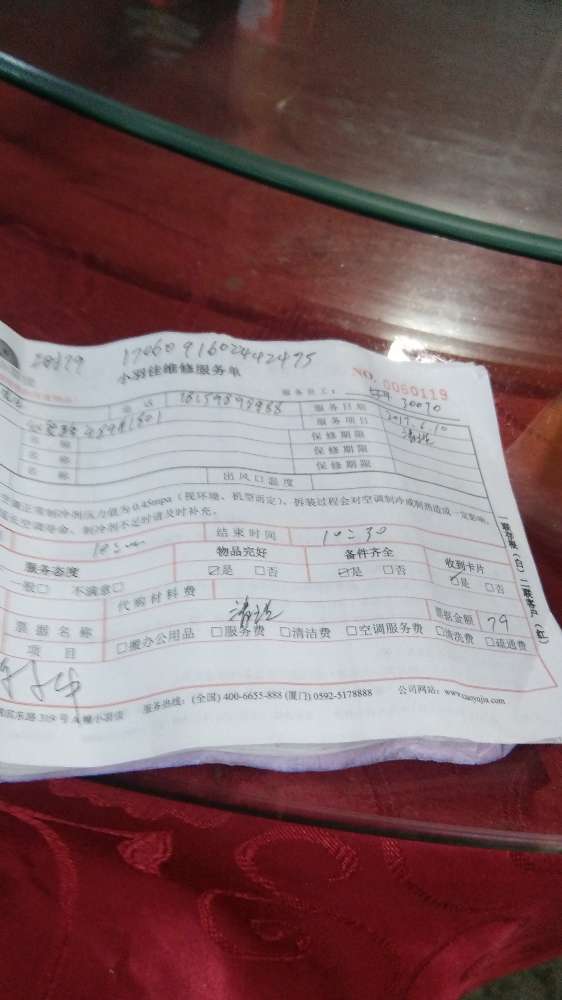 20379 17060 91602442475
小羽佳维修服务单 NO. 0060119
服务员工: 30070
电话 18159898968 服务日期 2017.6.10
48991801 服务项目 清洗
名称 保修期限
名称 保修期限
名称 出风口温度 保修期限
空调正常制冷剂压力值为0.45mpa（视环境、机型而定），拆装过程会对空调制冷或制热造成一定影响，
制冷剂不足时请及时补充。
结束时间 10:30
服务态度 物品完好 备件齐全 收到卡片
一般□ 不满意□ ☑是 □否 ☑是 □否 ☑是 □否
代购材料费 清洗
票据名称 票据金额 79
项目 □搬办公用品 □服务费 □清洁费 □空调服务费 □清洗费 □疏通费
东路 319 号 服务热线：(全国) 400-6655-888 (厦门) 0592-5178888 公司网站：www.xiaoyujia.com
一联存根（白）二联客户（红）